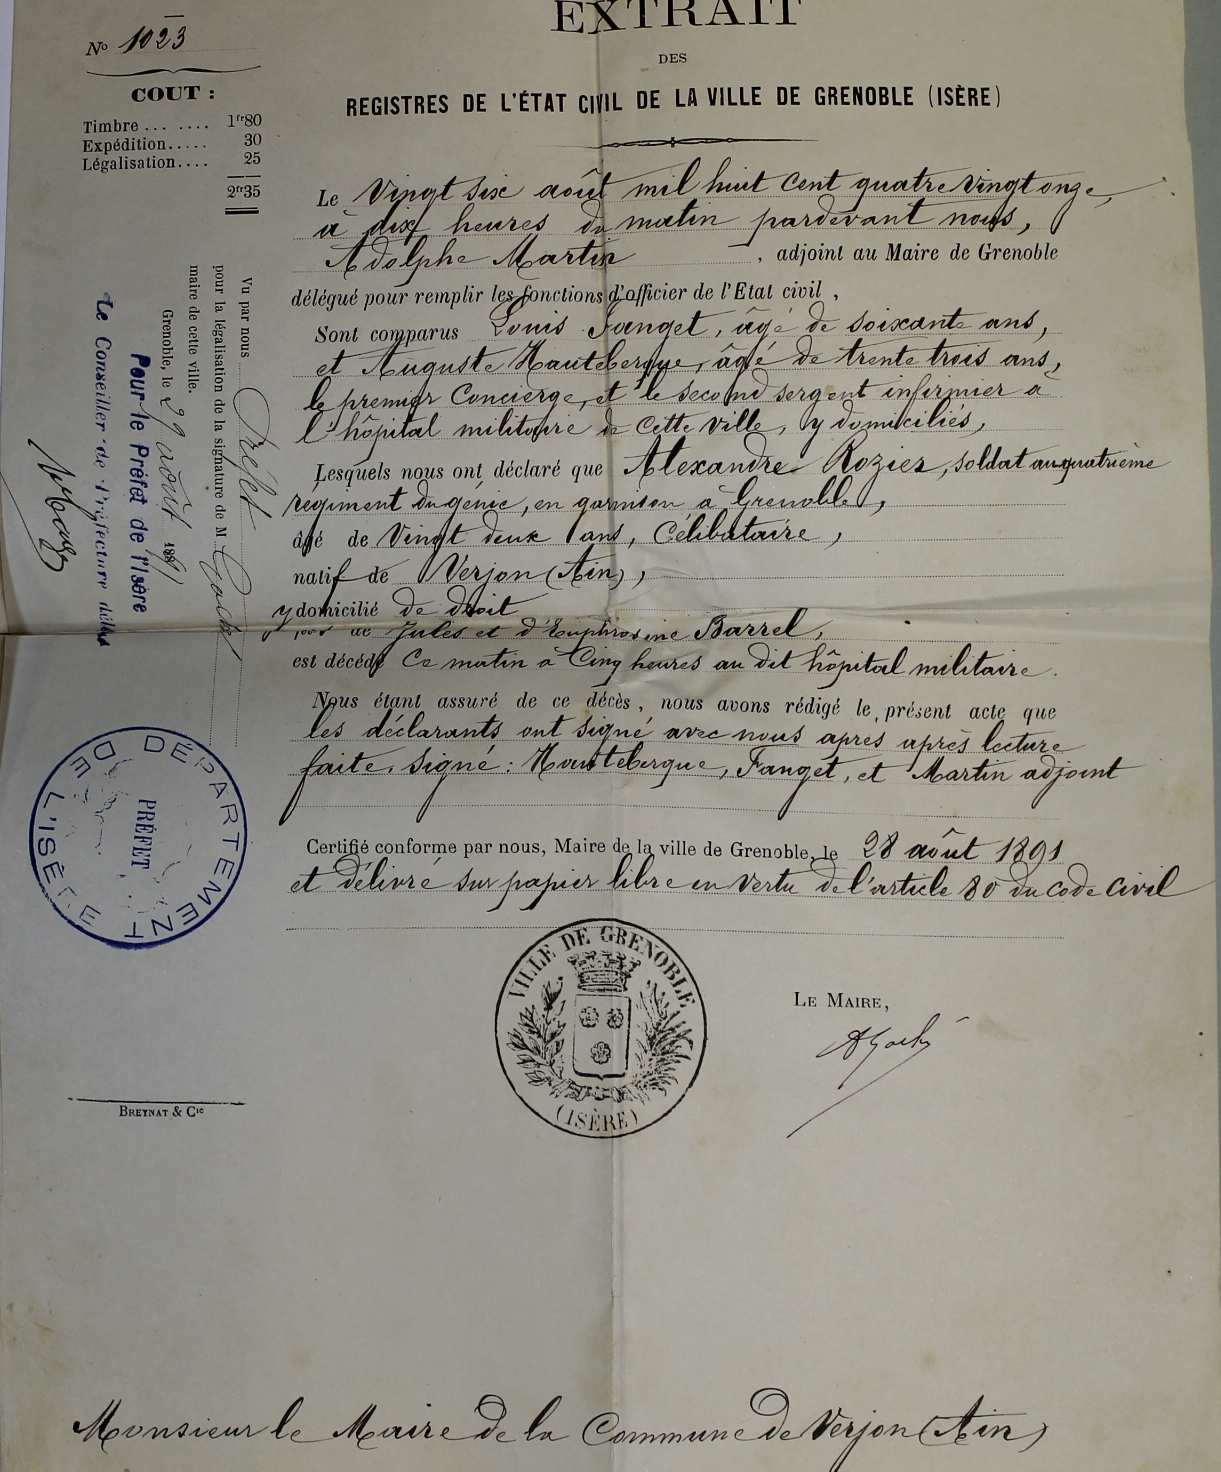 EXTRAIT
DES
REGISTRES DE L'ÉTAT CIVIL DE LA VILLE DE GRENOBLE (ISÈRE)
No 1023
COUT :
Timbre ... .... 1fr80
Expédition..... 30
Légalisation.... 25
2fr35
Le Vingt six août mil huit cent quatre vingt onze,
à dix heures du matin pardevant nous,
Adolphe Martin , adjoint au Maire de Grenoble
délégué pour remplir les fonctions d'officier de l'Etat civil,
Sont comparus Louis Fanget, âgé de soixante ans,
et Auguste Hautebergue, âgé de trente trois ans,
le premier Concierge, et le second sergent infirmier à
l'hôpital militaire de cette ville, y domiciliés,
Lesquels nous ont déclaré que Alexandre Rozier, soldat au quatrième
régiment du génie, en garnison à Grenoble,
âgé de Vingt deux ans, Célibataire,
natif de Verjon (Ain),
y domicilié de droit
de Jules et d'Euphrosine Barrel,
est décédé Ce matin à Cinq heures au dit hôpital militaire.
Nous étant assuré de ce décès, nous avons rédigé le présent acte que
les déclarants ont signé avec nous après après lecture
faite. signé : Hautebergue, Fanget, et Martin adjoint
Certifié conforme par nous, Maire de la ville de Grenoble, le 28 août 1891
et délivré sur papier libre en vertu de l'article 80 du code civil
LE MAIRE,
VILLE DE GRENOBLE
(ISÈRE)
Vu par nous Préfet
pour la légalisation de la signature de M
maire de cette ville.
Grenoble, le 29 août 1891
Pour le Préfet de l'Isère
Le Conseiller de Préfecture
DÉPARTEMENT DE L'ISÈRE
PRÉFET
BREYNAT & Cie
Monsieur le Maire de la Commune de Verjon (Ain)